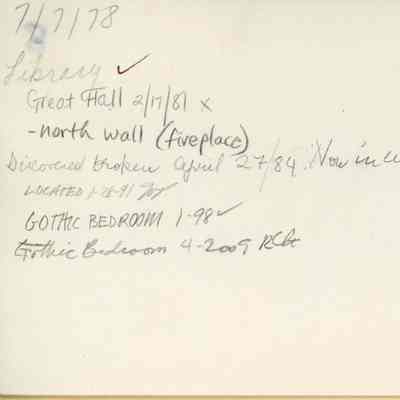 7/7/78
Library ✓
Great Hall 2/17/81 x
-north wall (fireplace)
Discovered broken April 27/84. Now in
LOCATED 1-28-91
GOTHIC BEDROOM 1-98 ✓
Gothic Bedroom 4-2009 RCG